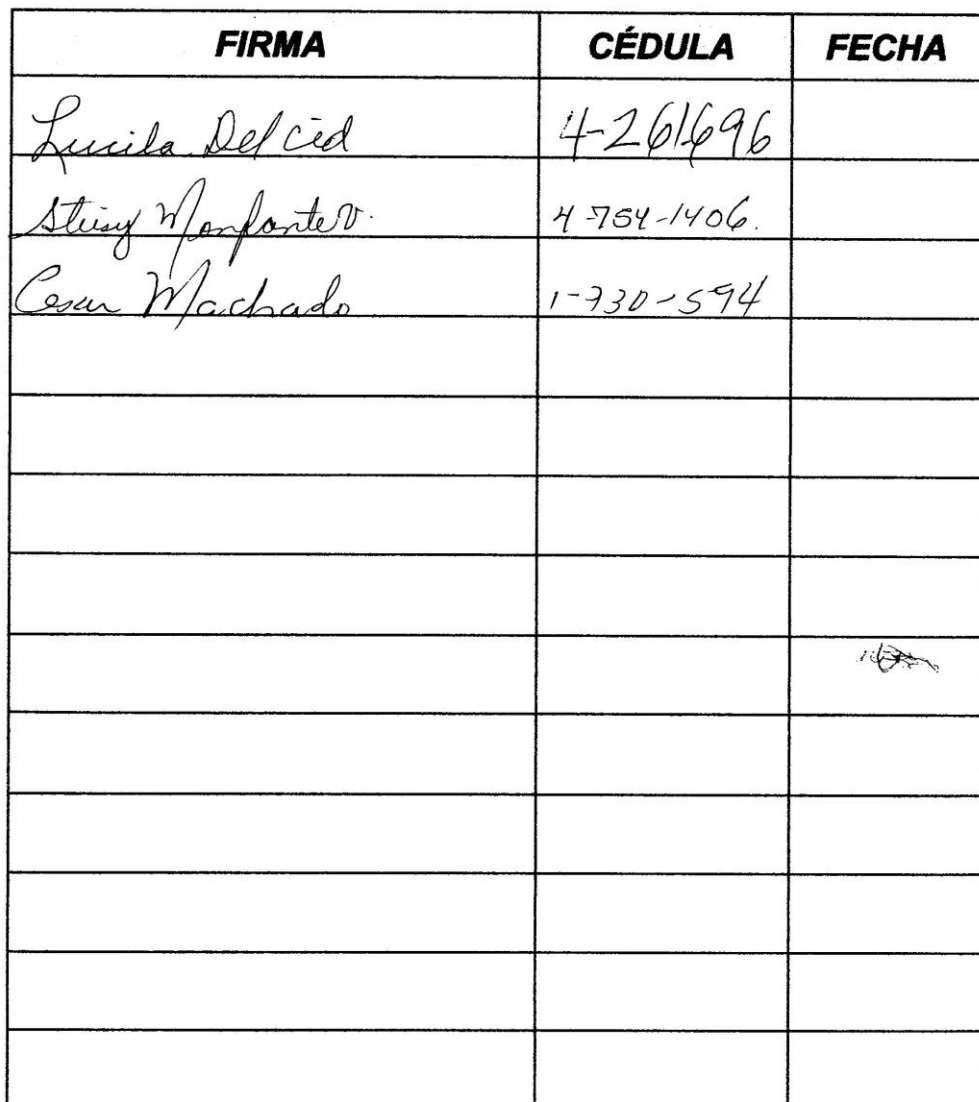 FIRMA CÉDULA FECHA
Lucila Del Cid 4-261-696
4-754-1406.
Cesar Machado 1-730-594